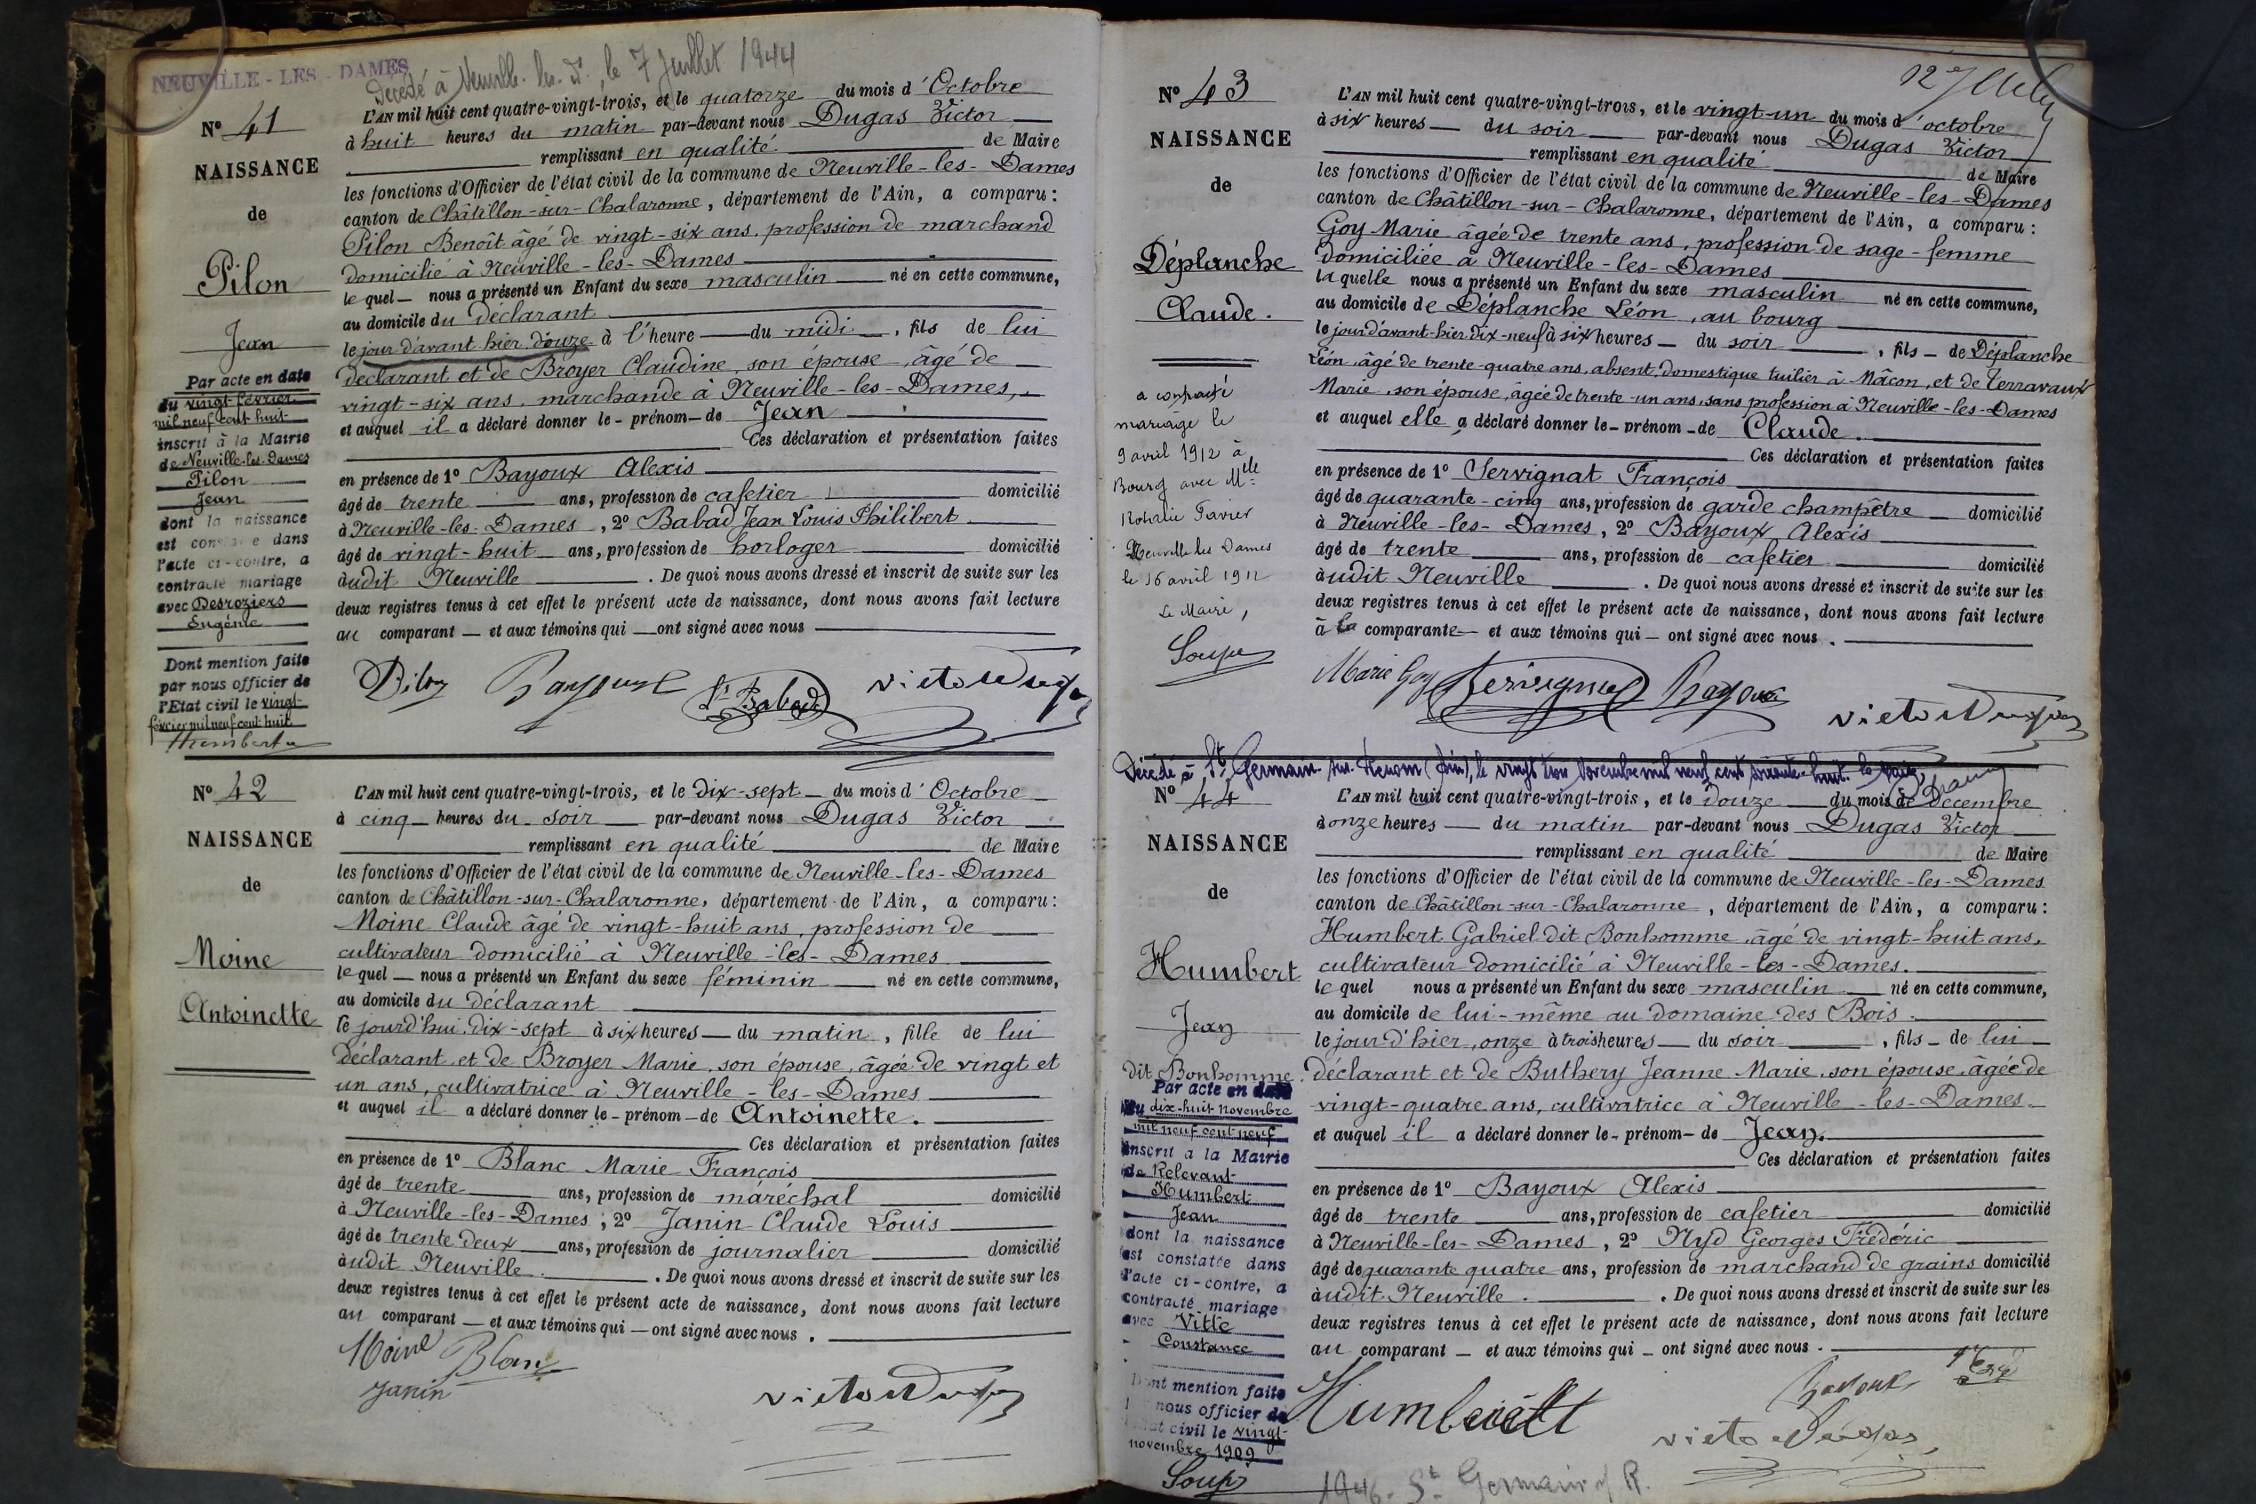 NEUVILLE - LES - DAMES
Décédé à Neuville-les-D., le 7 Juillet 1944
N° 41
NAISSANCE
de
Pilon
Jean
Par acte en date
du vingt février
mil neuf cent huit
inscrit à la Mairie
de Neuville-les-Dames
Pilon
Jean
dont la naissance
est constatée dans
l'acte ci-contre, a
contracté mariage
avec Desroziers
Eugénie
Dont mention faite
par nous officier de
l'Etat civil le vingt
février mil neuf cent huit
Humbert
L'AN mil huit cent quatre-vingt-trois, et le quatorze du mois d'Octobre
à huit heures du matin par-devant nous Dugas Victor
remplissant en qualité de Maire
les fonctions d'Officier de l'état civil de la commune de Neuville-les-Dames
canton de Châtillon-sur-Chalaronne, département de l'Ain, a comparu:
Pilon Benoît âgé de vingt-six ans, profession de marchand
domicilié à Neuville-les-Dames
le quel nous a présenté un Enfant du sexe masculin né en cette commune,
au domicile du déclarant
le jour d'avant hier douze à l'heure du midi, fils de lui
déclarant et de Broyer Claudine, son épouse, âgé de
vingt-six ans, marchande à Neuville-les-Dames,
et auquel il a déclaré donner le prénom de Jean
Ces déclaration et présentation faites
en présence de 1° Bayoux Alexis
âgé de trente ans, profession de cafetier domicilié
à Neuville-les-Dames, 2° Babad Jean Louis Philibert
âgé de vingt-huit ans, profession de horloger domicilié
audit Neuville. De quoi nous avons dressé et inscrit de suite sur les
deux registres tenus à cet effet le présent acte de naissance, dont nous avons fait lecture
au comparant et aux témoins qui ont signé avec nous
Pilon Bayoux Babad Victor Dugas
N° 42
NAISSANCE
de
Moine
Antoinette
L'AN mil huit cent quatre-vingt-trois, et le dix-sept du mois d'Octobre
à cinq heures du soir par-devant nous Dugas Victor
remplissant en qualité de Maire
les fonctions d'Officier de l'état civil de la commune de Neuville-les-Dames
canton de Châtillon-sur-Chalaronne, département de l'Ain, a comparu:
Moine Claude âgé de vingt-huit ans, profession de
cultivateur domicilié à Neuville-les-Dames
le quel nous a présenté un Enfant du sexe féminin né en cette commune,
au domicile du déclarant
le jourd'hui dix-sept à six heures du matin, fille de lui
déclarant et de Broyer Marie, son épouse, âgée de vingt et
un ans, cultivatrice à Neuville-les-Dames
et auquel il a déclaré donner le prénom de Antoinette.
Ces déclaration et présentation faites
en présence de 1° Blanc Marie François
âgé de trente ans, profession de maréchal domicilié
à Neuville-les-Dames, 2° Janin Claude Louis
âgé de trente deux ans, profession de journalier domicilié
audit Neuville. De quoi nous avons dressé et inscrit de suite sur les
deux registres tenus à cet effet le présent acte de naissance, dont nous avons fait lecture
au comparant et aux témoins qui ont signé avec nous.
Moine Blanc
Janin Victor Dugas
N° 43
NAISSANCE
de
Déplanche
Claude.
a contracté
mariage le
9 avril 1912 à
Bourg avec Mlle
Rosalie Favier
Neuville les Dames
le 16 avril 1912
Le Maire,
Soupe
L'AN mil huit cent quatre-vingt-trois, et le vingt-un du mois d'octobre
à six heures du soir par-devant nous Dugas Victor
remplissant en qualité de Maire
les fonctions d'Officier de l'état civil de la commune de Neuville-les-Dames
canton de Châtillon-sur-Chalaronne, département de l'Ain, a comparu:
Goy Marie âgée de trente ans, profession de sage-femme
domiciliée à Neuville-les-Dames
la quelle nous a présenté un Enfant du sexe masculin né en cette commune,
au domicile de Déplanche Léon, au bourg
le jour d'avant-hier dix-neuf à six heures du soir, fils de Déplanche
Léon, âgé de trente-quatre ans, absent, domestique tuilier à Mâcon, et de Terravaux
Marie, son épouse, âgée de trente-un ans, sans profession à Neuville-les-Dames
et auquel elle a déclaré donner le prénom de Claude.
Ces déclaration et présentation faites
en présence de 1° Servignat François
âgé de quarante-cinq ans, profession de garde champêtre domicilié
à Neuville-les-Dames, 2° Bayoux Alexis
âgé de trente ans, profession de cafetier domicilié
audit Neuville. De quoi nous avons dressé et inscrit de suite sur les
deux registres tenus à cet effet le présent acte de naissance, dont nous avons fait lecture
à la comparante et aux témoins qui ont signé avec nous.
Marie Goy Servignat Bayoux
Victor Dugas
Décédé à St Germain-sur-Renom (Ain), le vingt trois novembre mil neuf cent soixante-huit. le Maire
N° 44
NAISSANCE
de
Humbert
Jean
dit Bonhomme.
Par acte en date
du dix-huit novembre
mil neuf cent neuf
inscrit à la Mairie
de Relevant
Humbert
Jean
dont la naissance
est constatée dans
l'acte ci-contre, a
contracté mariage
avec Ville
Constance
Dont mention faite
nous officier de
Etat civil le vingt
novembre 1909
Soupe
L'AN mil huit cent quatre-vingt-trois, et le douze du mois de Décembre
à onze heures du matin par-devant nous Dugas Victor
remplissant en qualité de Maire
les fonctions d'Officier de l'état civil de la commune de Neuville-les-Dames
canton de Châtillon-sur-Chalaronne, département de l'Ain, a comparu:
Humbert Gabriel dit Bonhomme, âgé de vingt-huit ans,
cultivateur domicilié à Neuville-les-Dames.
le quel nous a présenté un Enfant du sexe masculin né en cette commune,
au domicile de lui-même au domaine des Bois.
le jour d'hier, onze à trois heures du soir, fils de lui
déclarant et de Buthery Jeanne Marie, son épouse, âgée de
vingt-quatre ans, cultivatrice à Neuville-les-Dames.
et auquel il a déclaré donner le prénom de Jean.
Ces déclaration et présentation faites
en présence de 1° Bayoux Alexis
âgé de trente ans, profession de cafetier domicilié
à Neuville-les-Dames, 2° Nyd Georges Frédéric
âgé de quarante quatre ans, profession de marchand de grains domicilié
audit Neuville. De quoi nous avons dressé et inscrit de suite sur les
deux registres tenus à cet effet le présent acte de naissance, dont nous avons fait lecture
au comparant et aux témoins qui ont signé avec nous.
Humbert Bayoux
Victor Dugas
1946. St Germain s/ R.